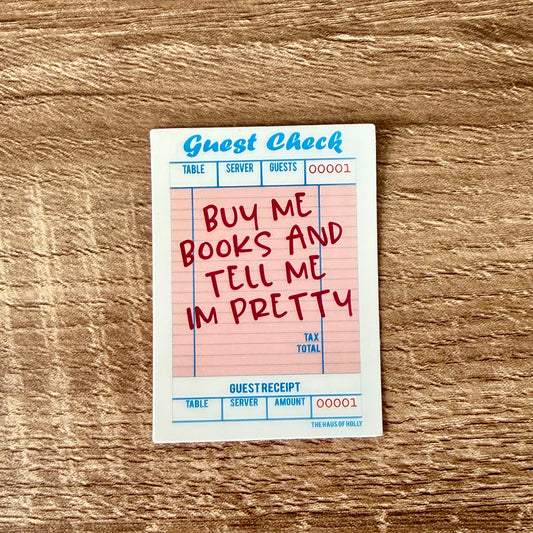 Guest Check
TABLE SERVER GUESTS 00001
BUY ME
BOOKS AND
TELL ME
IM PRETTY
TAX
TOTAL
GUEST RECEIPT
TABLE SERVER AMOUNT 00001
THE HAUS OF HOLLY